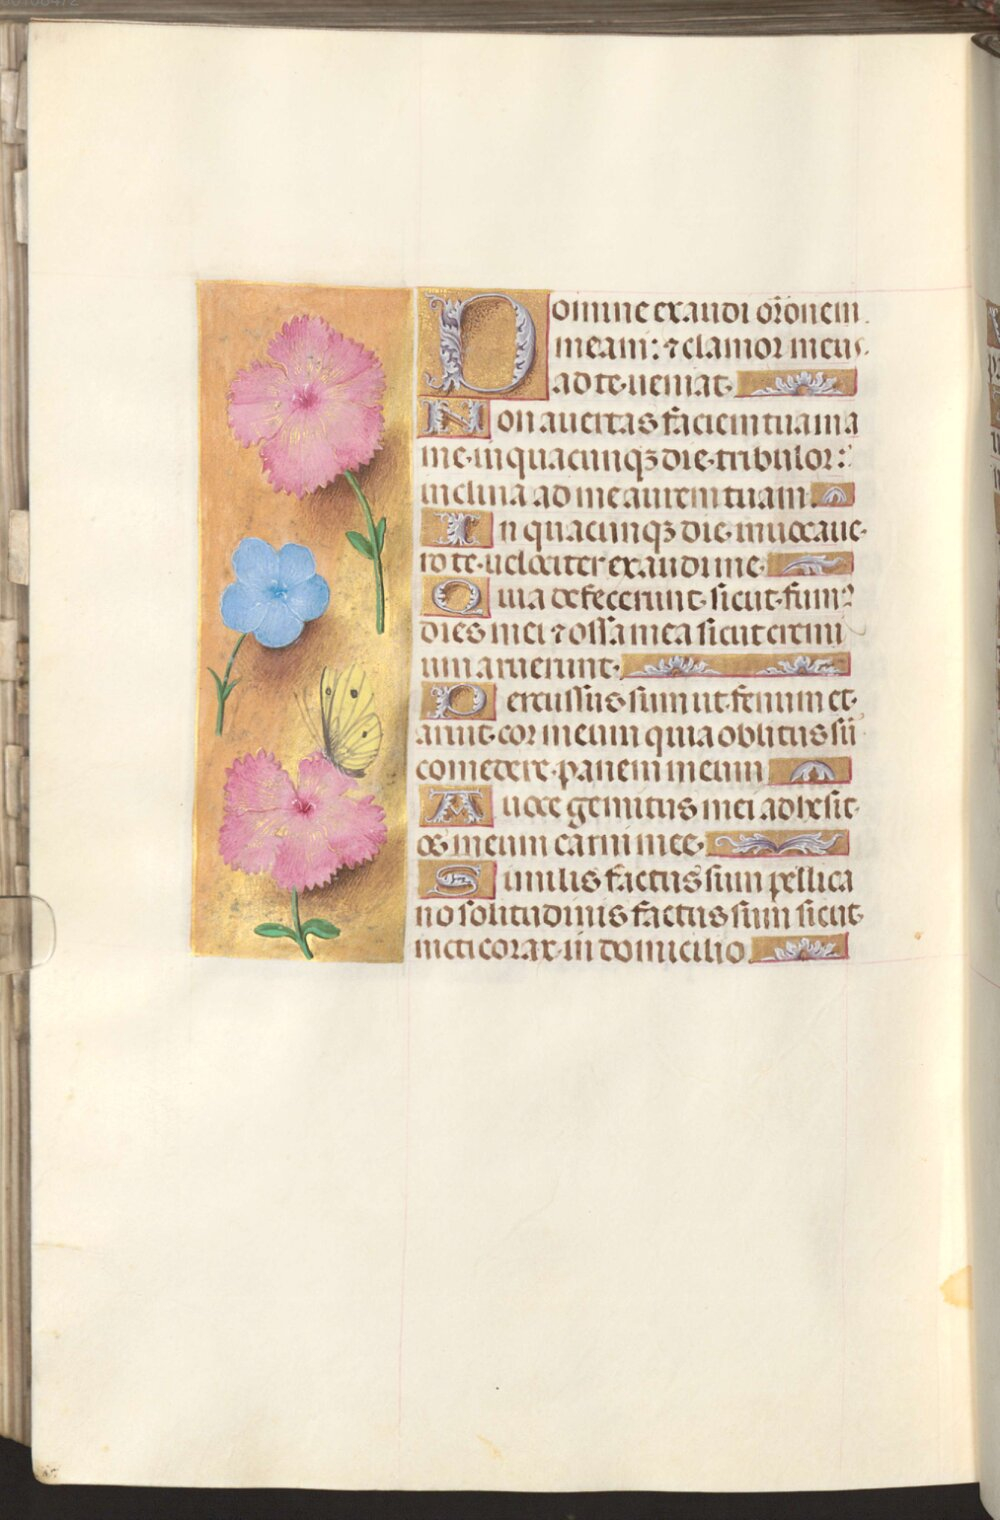 Domine exaudi or̄onem
meam: ⁊ clamor meus
ad te ueniat
Non auertas faciem tuam a
me in quacunqꝫ die tribulor:
inclina ad me aurem tuam
In quacunqꝫ die inuocaue
ro te uelociter exaudi me
Quia defecerunt sicut fumꝰ
dies mei ⁊ ossa mea sicut cremi
um aruerunt
Percussus sum ut fenum et
aruit cor meum quia oblitus sū
comedere panem meum
A uoce gemitus mei adhesit
os meum carni mee
Similis factus sum pellica
no solitudinis factus sum sicut
nicticorax in domicilio